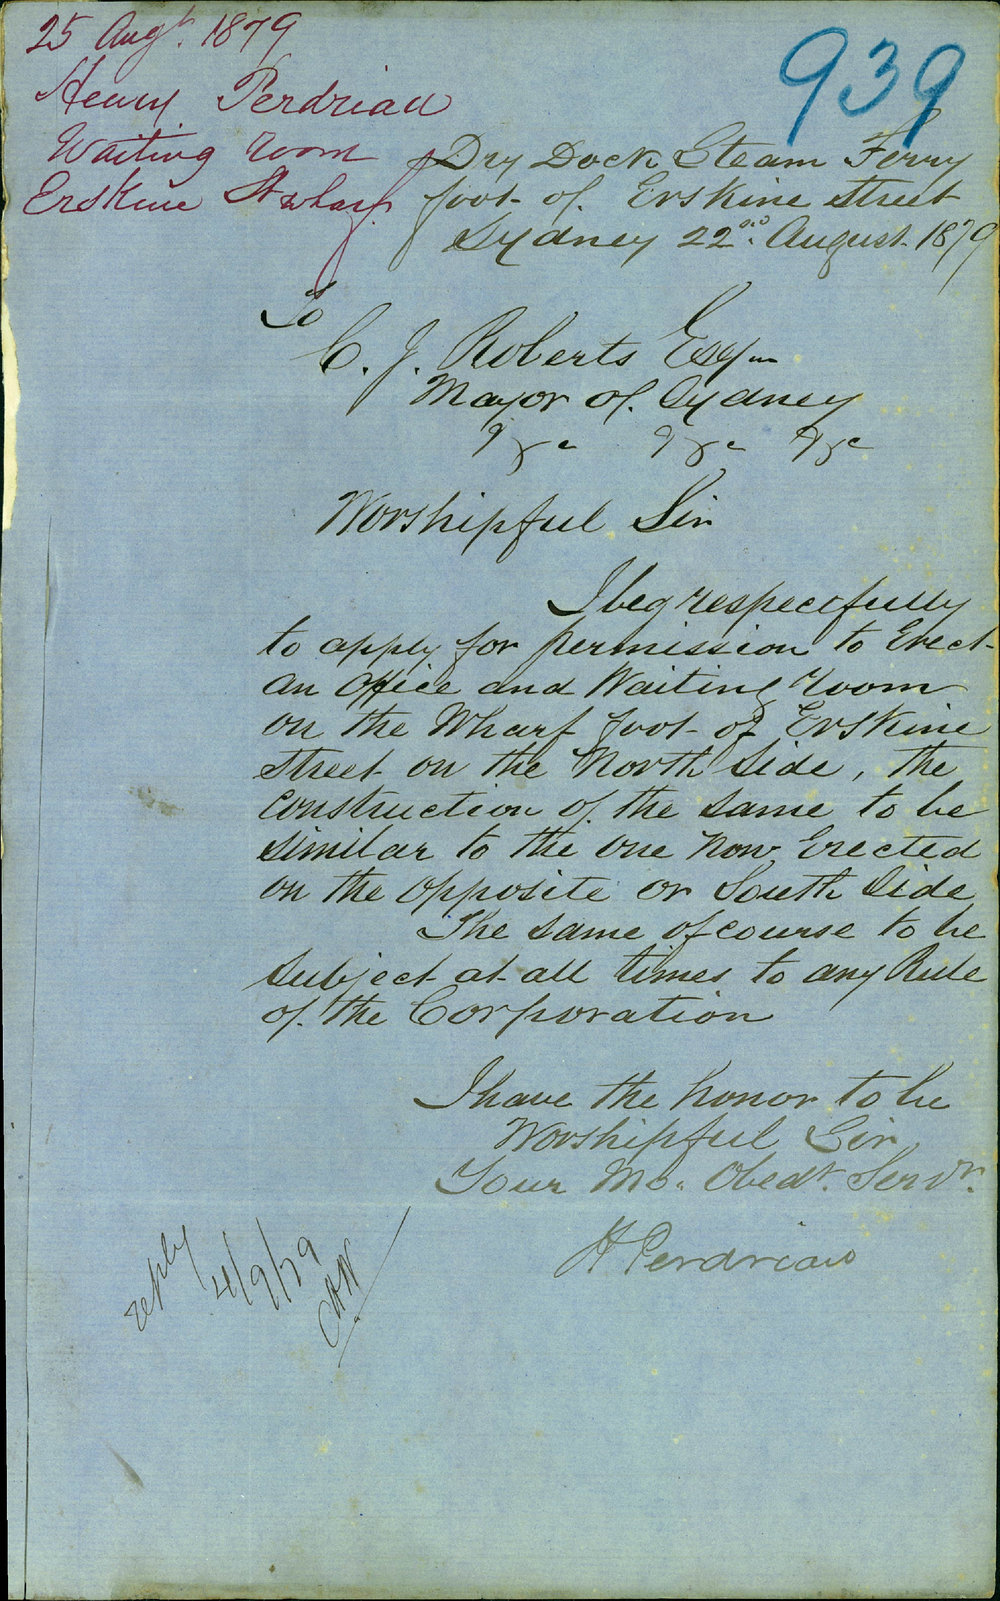 25 Augt. 1879
Henry Perdriau
Waiting room
Erskine St wharf.
939
Dry Dock Steam Ferry
foot of Erskine Street
Sydney 22nd. August 1879
To
C. J. Roberts Esqre
Mayor of Sydney
&c &c &c
Worshipful Sir
I beg respectfully
to apply for permission to Erect
an Office and Waiting room
on the Wharf foot of Erskine
Street on the North Side, the
Construction of the same to be
similar to the one now Erected
on the opposite or South Side
The same of course to be
Subject at all times to any Rule
of the Corporation
I have the honor to be
Worshipful Sir
Your Mo. Obedt. Servt.
H Perdriau
reply
4/9/79